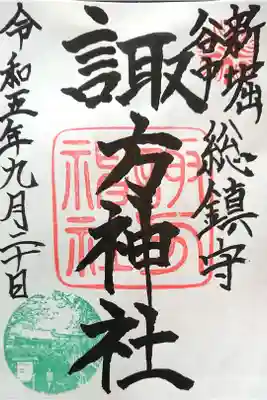 新堀
谷中
総鎮守
諏方神社
令和五年九月二十日
諏方
神社